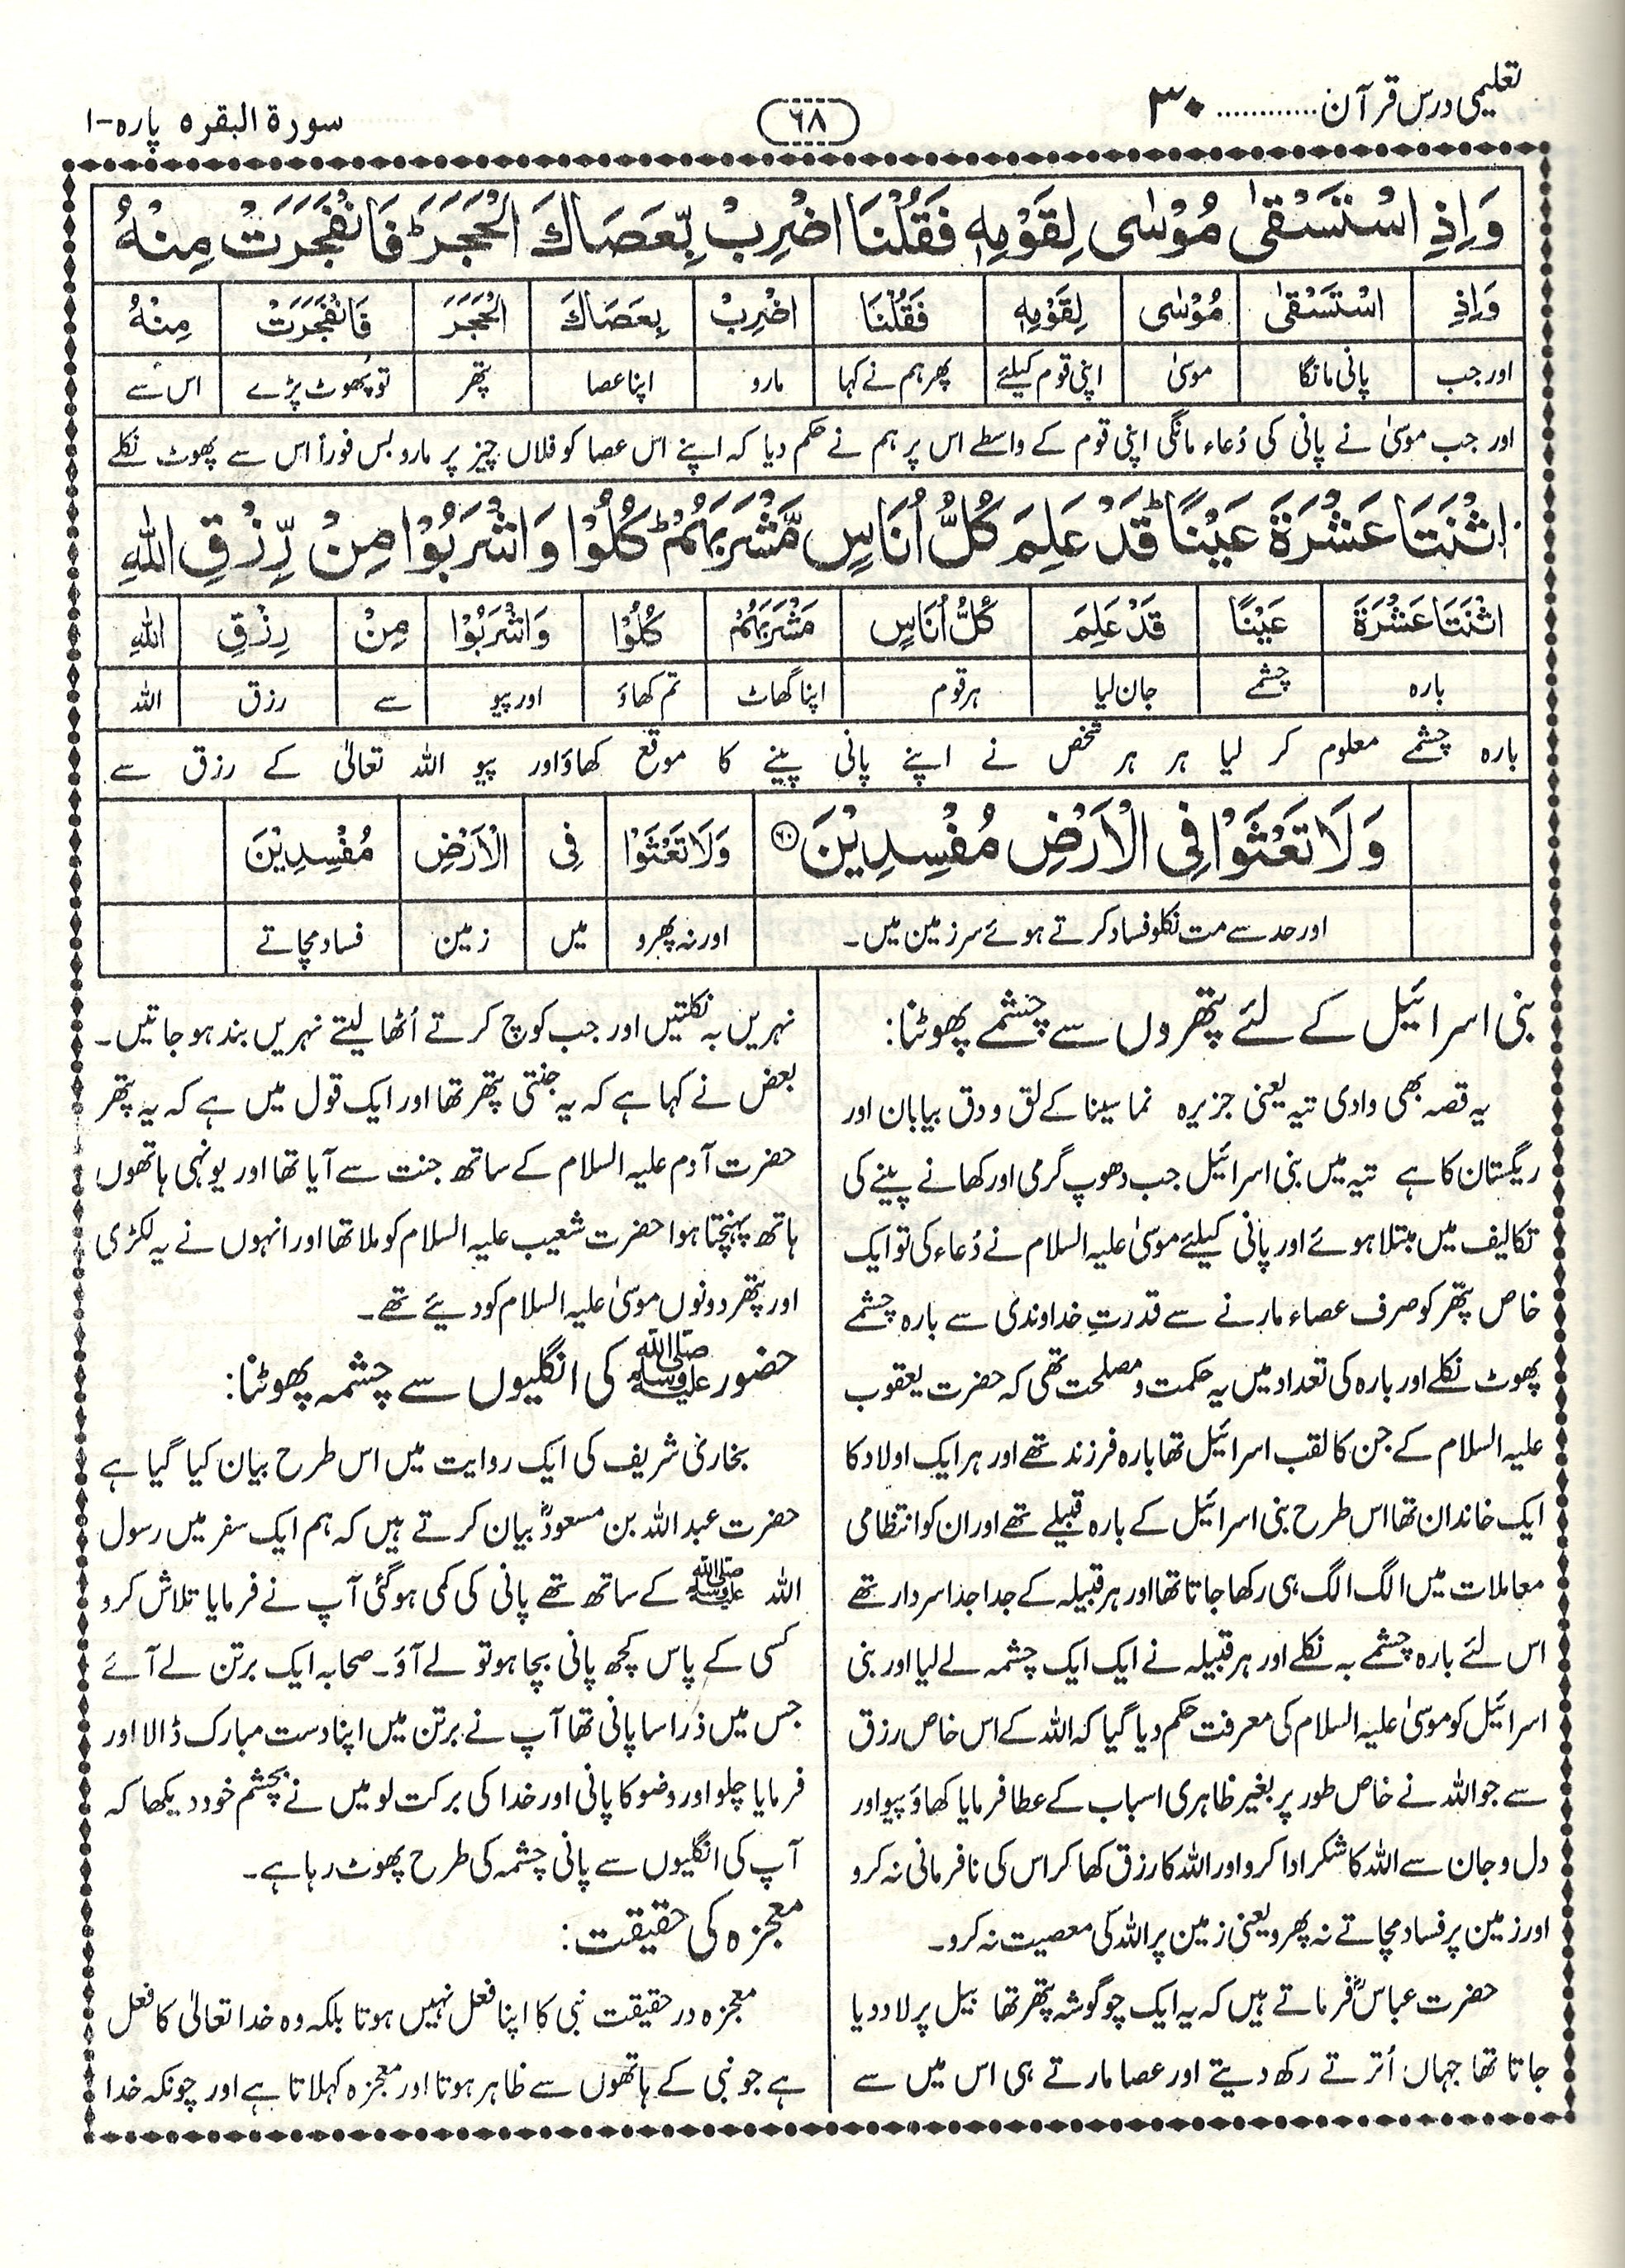 تعلیمی درس قرآن............ ۳۰
۶۸
سورۃ البقرہ پارہ-۱
وَاِذِ اسْتَسْقٰی مُوْسٰی لِقَوْمِهٖ فَقُلْنَا اضْرِبْ بِّعَصَاكَ الْحَجَرَ ؕ فَانْفَجَرَتْ مِنْهُ
وَاِذِ اسْتَسْقٰی مُوْسٰی لِقَوْمِهٖ فَقُلْنَا اضْرِبْ بِعَصَاكَ الْحَجَرَ فَانْفَجَرَتْ مِنْهُ
اور جب پانی مانگا موسیٰ اپنی قوم کیلئے پھر ہم نے کہا مارو اپنا عصا پتھر تو پُھوٹ پڑے اس سے
اور جب موسیٰ نے پانی کی دُعاء مانگی اپنی قوم کے واسطے اس پر ہم نے حکم دیا کہ اپنے اس عصا کو فلاں چیز پر مارو بس فوراً اس سے پھوٹ نکلے
اثْنَتَا عَشْرَةَ عَيْنًا ؕ قَدْ عَلِمَ كُلُّ اُنَاسٍ مَّشْرَبَهُمْ ؕ كُلُوْا وَاشْرَبُوْا مِنْ رِّزْقِ اللّٰهِ
اثْنَتَا عَشْرَةَ عَيْنًا قَدْ عَلِمَ كُلُّ اُنَاسٍ مَشْرَبَهُمْ كُلُوْا وَاشْرَبُوْا مِنْ رِزْقِ اللّٰهِ
بارہ چشمے جان لیا ہر قوم اپنا گھاٹ تم کھاؤ اور پیو سے رزق اللہ
بارہ چشمے معلوم کر لیا ہر ہر شخص نے اپنے پانی پینے کا موقع کھاؤ اور پیو اللہ تعالیٰ کے رزق سے
وَلَا تَعْثَوْا فِی الْاَرْضِ مُفْسِدِیْنَ ۶۰ وَلَا تَعْثَوْا فِی الْاَرْضِ مُفْسِدِیْنَ
اور حد سے مت نکلو فساد کرتے ہوئے سر زمین میں۔ اور نہ پھرو میں زمین فساد مچاتے
بنی اسرائیل کے لئے پتھروں سے چشمے پھوٹنا:
یہ قصہ بھی وادی تیہ یعنی جزیرہ نما سینا کے لق و دق بیابان اور
ریگستان کا ہے تیہ میں بنی اسرائیل جب دھوپ گرمی اور کھانے پینے کی
تکالیف میں مبتلا ہوئے اور پانی کیلئے موسیٰ علیہ السلام نے دُعاء کی تو ایک
خاص پتھر کو صرف عصاء مارنے سے قدرتِ خداوندی سے بارہ چشمے
پھوٹ نکلے اور بارہ کی تعداد میں یہ حکمت و مصلحت تھی کہ حضرت یعقوب
علیہ السلام کے جن کا لقب اسرائیل تھا بارہ فرزند تھے اور ہر ایک اولاد کا
ایک خاندان تھا اس طرح بنی اسرائیل کے بارہ قبیلے تھے اور ان کو انتظامی
معاملات میں الگ الگ ہی رکھا جاتا تھا اور ہر قبیلہ کے جدا جدا سردار تھے
اس لئے بارہ چشمے بہ نکلے اور ہر قبیلہ نے ایک ایک چشمہ لے لیا اور بنی
اسرائیل کو موسیٰ علیہ السلام کی معرفت حکم دیا گیا کہ اللہ کے اس خاص رزق
سے جو اللہ نے خاص طور پر بغیر ظاہری اسباب کے عطا فرمایا کھاؤ پیو اور
دل و جان سے اللہ کا شکر ادا کرو اور اللہ کا رزق کھا کر اس کی نافرمانی نہ کرو
اور زمین پر فساد مچاتے نہ پھرو یعنی زمین پر اللہ کی معصیت نہ کرو۔
حضرت عباسؓ فرماتے ہیں کہ یہ ایک چوگوشہ پتھر تھا بیل پر لاد دیا
جاتا تھا جہاں اُترتے رکھ دیتے اور عصا مارتے ہی اس میں سے
نہریں بہ نکلتیں اور جب کوچ کرتے اُٹھا لیتے نہریں بند ہو جاتیں۔
بعض نے کہا ہے کہ یہ جنتی پتھر تھا اور ایک قول میں ہے کہ یہ پتھر
حضرت آدم علیہ السلام کے ساتھ جنت سے آیا تھا اور یونہی ہاتھوں
ہاتھ پہنچتا ہوا حضرت شعیب علیہ السلام کو ملا تھا اور انہوں نے یہ لکڑی
اور پتھر دونوں موسیٰ علیہ السلام کو دیئے تھے۔
حضور ﷺ کی انگلیوں سے چشمہ پھوٹنا:
بخاری شریف کی ایک روایت میں اس طرح بیان کیا گیا ہے
حضرت عبداللہ بن مسعودؓ بیان کرتے ہیں کہ ہم ایک سفر میں رسول
اللہ ﷺ کے ساتھ تھے پانی کی کمی ہوگئی آپ نے فرمایا تلاش کرو
کسی کے پاس کچھ پانی بچا ہو تو لے آؤ۔ صحابہ ایک برتن لے آئے
جس میں ذرا سا پانی تھا آپ نے برتن میں اپنا دست مبارک ڈالا اور
فرمایا چلو اور وضو کا پانی اور خدا کی برکت لو میں نے بچشم خود دیکھا کہ
آپ کی انگلیوں سے پانی چشمہ کی طرح پھوٹ رہا ہے۔
معجزہ کی حقیقت:
معجزہ در حقیقت نبی کا اپنا فعل نہیں ہوتا بلکہ وہ خدا تعالیٰ کا فعل
ہے جو نبی کے ہاتھوں سے ظاہر ہوتا اور معجزہ کہلاتا ہے اور چونکہ خدا